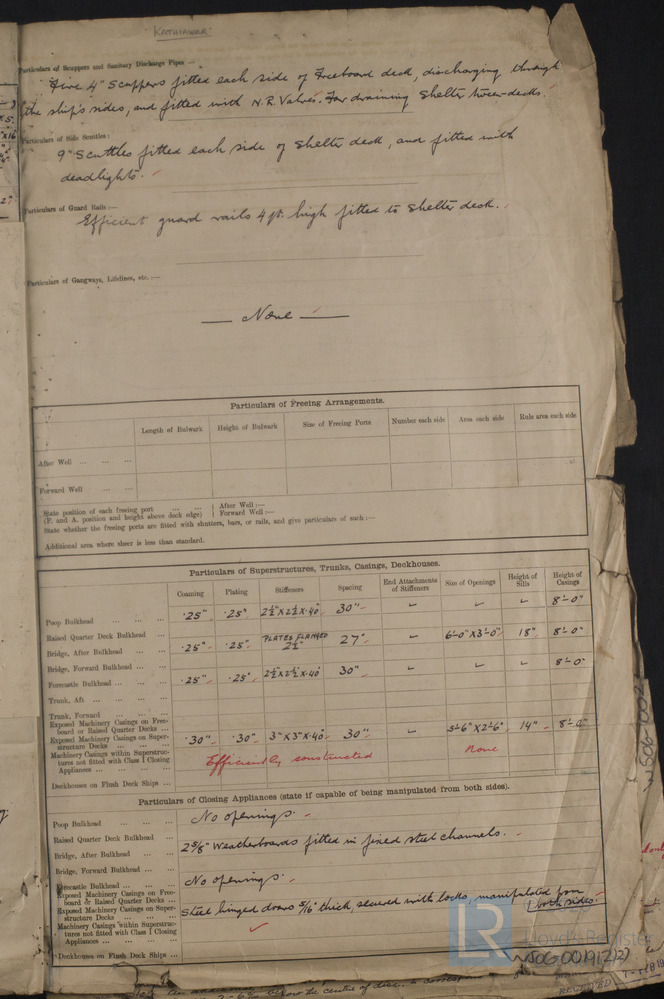 "KATHIAWAR"
Particulars of Scuppers and Sanitary Discharge Pipes —
Five 4" Scuppers fitted each side of Freeboard deck, discharging through
the ship's sides, and fitted with N.R. Valves. For draining Shelter tween-decks.
Particulars of Side Scuttles:
9" Scuttles fitted each side of Shelter deck, and fitted with
deadlights.
Particulars of Guard Rails :—
Efficient guard rails 4 ft. high fitted to Shelter deck.
Particulars of Gangways, Lifelines, etc. :—
— None —
Particulars of Freeing Arrangements.
Length of Bulwark Height of Bulwark Size of Freeing Ports Number each side Area each side Rule area each side
After Well ... ... ...
Forward Well ... ...
State position of each freeing port ... ... After Well :—
(F. and A. position and height above deck edge) Forward Well :—
State whether the freeing ports are fitted with shutters, bars, or rails, and give particulars of such :—
Additional area where sheer is less than standard.
Particulars of Superstructures, Trunks, Casings, Deckhouses.
Coaming Plating Stiffeners Spacing End Attachments of Stiffeners Size of Openings Height of Sills Height of Casings
Poop Bulkhead ... ... ... ·25" ·25" 2½"x2½"x·40 30" 8'-0"
Raised Quarter Deck Bulkhead ...
Bridge, After Bulkhead ... ... ·25" ·25" PLATES FLANGED 2½" 27" 6'-0"x3'-0" 18" 8'-0"
Bridge, Forward Bulkhead ... ...
Forecastle Bulkhead ... ... ·25" ·25" 2½"x2½"x·40 30" 8'-0"
Trunk, Aft ... ... ... ...
Trunk, Forward ... ... ...
Exposed Machinery Casings on Freeboard or Raised Quarter Decks ...
Exposed Machinery Casings on Superstructure Decks ... ... ·30" ·30" 3"x3"x·40 30" 5'-6"x2'-6" 14" 8'-0"
Machinery Casings within Superstructures not fitted with Class I Closing Appliances ... ... ... Efficiently constructed None
Deckhouses on Flush Deck Ships ...
Particulars of Closing Appliances (state if capable of being manipulated from both sides).
Poop Bulkhead ... ... ... No openings.
Raised Quarter Deck Bulkhead ...
Bridge, After Bulkhead ... ... 2⅝" Weatherboards fitted in fixed steel channels.
Bridge, Forward Bulkhead ... ...
Forecastle Bulkhead ... ... ... No openings.
Exposed Machinery Casings on Freeboard or Raised Quarter Decks ...
Exposed Machinery Casings on Superstructure Decks ... ... Steel hinged doors 5/16" thick, secured with locks, manipulated from both sides.
Machinery Casings within Superstructures not fitted with Class I Closing Appliances ... ... ...
Deckhouses on Flush Deck Ships ...
LR
Lloyd's Register
WSOG-1002
WSOG 0019(2)2)
RECEIVED